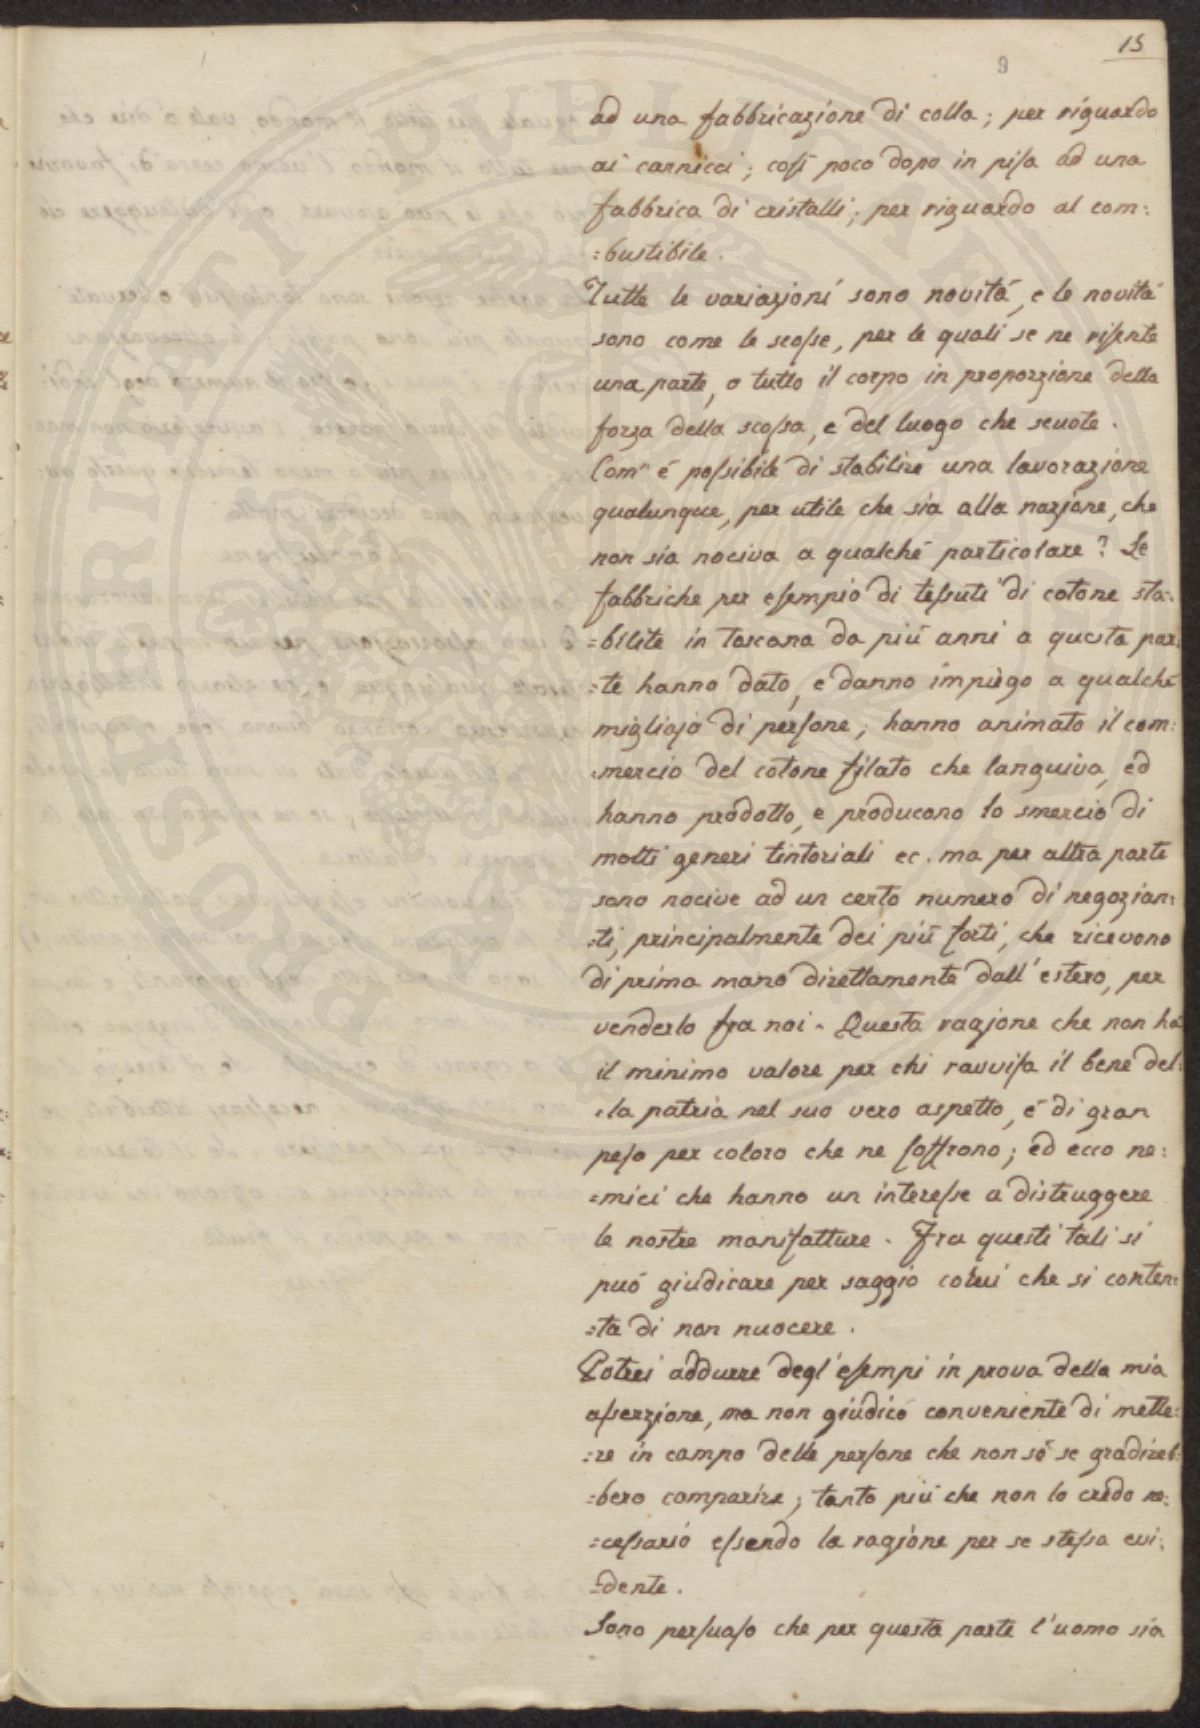 15
9
ad una fabbricazione di colla; per riguardo
ai carnicci; così poco dopo in pisa ad una
fabbrica di cristalli; per riguardo al com:
:bustibile.
Tutte le variazioni sono novità, e le novità
sono come le scosse, per le quali se ne risente
una parte, o tutto il corpo in proporzione della
forza della scossa, e del luogo che scuote.
Com'' é possibile di stabilire una lavorazione
qualunque, per utile che sia alla nazione, che
non sia nociva a qualche particolare? Le
fabbriche per esempio di tessuti di cotone sta:
:bilite in Toscana da più anni a questa par:
:te hanno dato, e danno impiego a qualche
migliajo di persone; hanno animato il com:
:mercio del cotone filato che languiva, ed
hanno prodotto, e producono lo smercio di
molti generi tintoriali ec. ma per altra parte
sono nocive ad un certo numero di negozian:
:ti, principalmente dei più forti, che ricevono
di prima mano direttamente dall'estero, per
venderlo fra noi. Questa ragione che non há
il minimo valore per chi ravvisa il bene del:
:la patria nel suo vero aspetto, é di gran
peso per coloro che ne soffrono; ed ecco ne:
:mici che hanno un interesse a distruggere
le nostre manifatture. Fra questi tali si
può giudicare per saggio colui che si conten:
:ta di non nuocere.
Potrei addurre degl'esempi in prova della mia
asserzione, ma non giudico conveniente di mette:
:re in campo delle persone che non só se gradireb:
:bero comparire; tanto più che non lo credo ne:
:cessario essendo la ragione per se stessa evi:
:dente.
Sono persuaso che per questa parte l'uomo sia
PROSPERITATI PUBLICAE